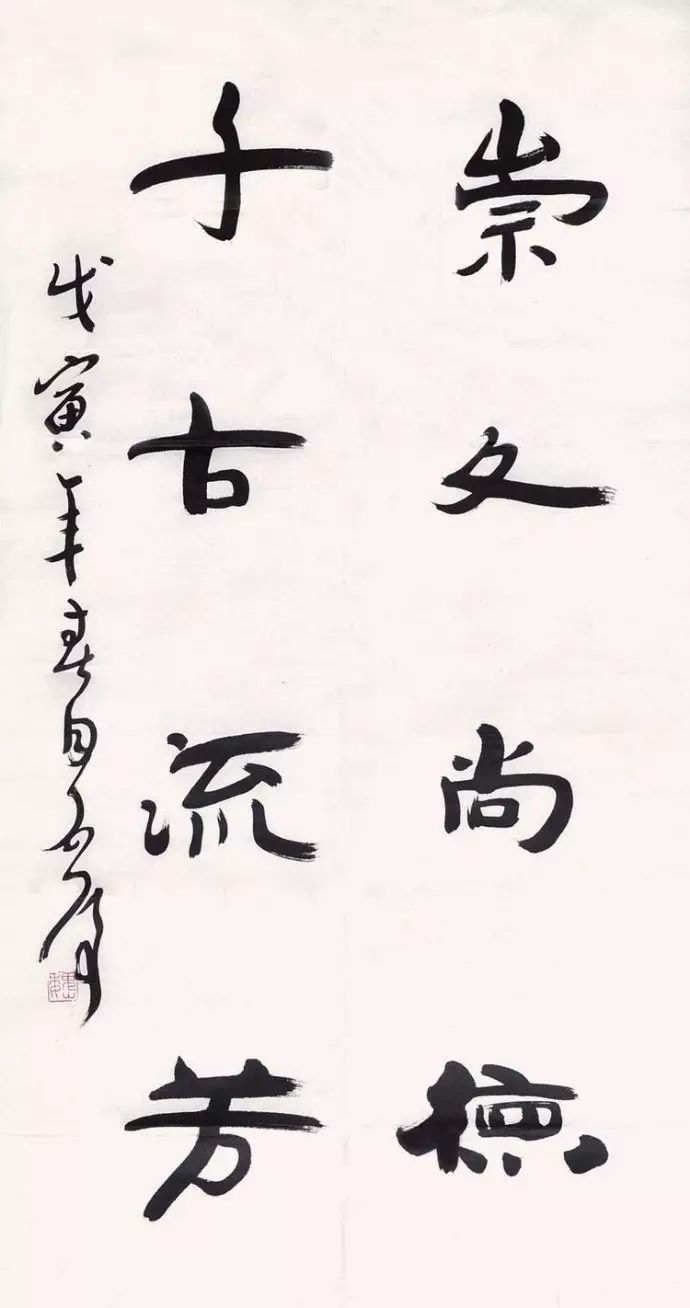 崇文尚德
千古流芳
戊寅年春日